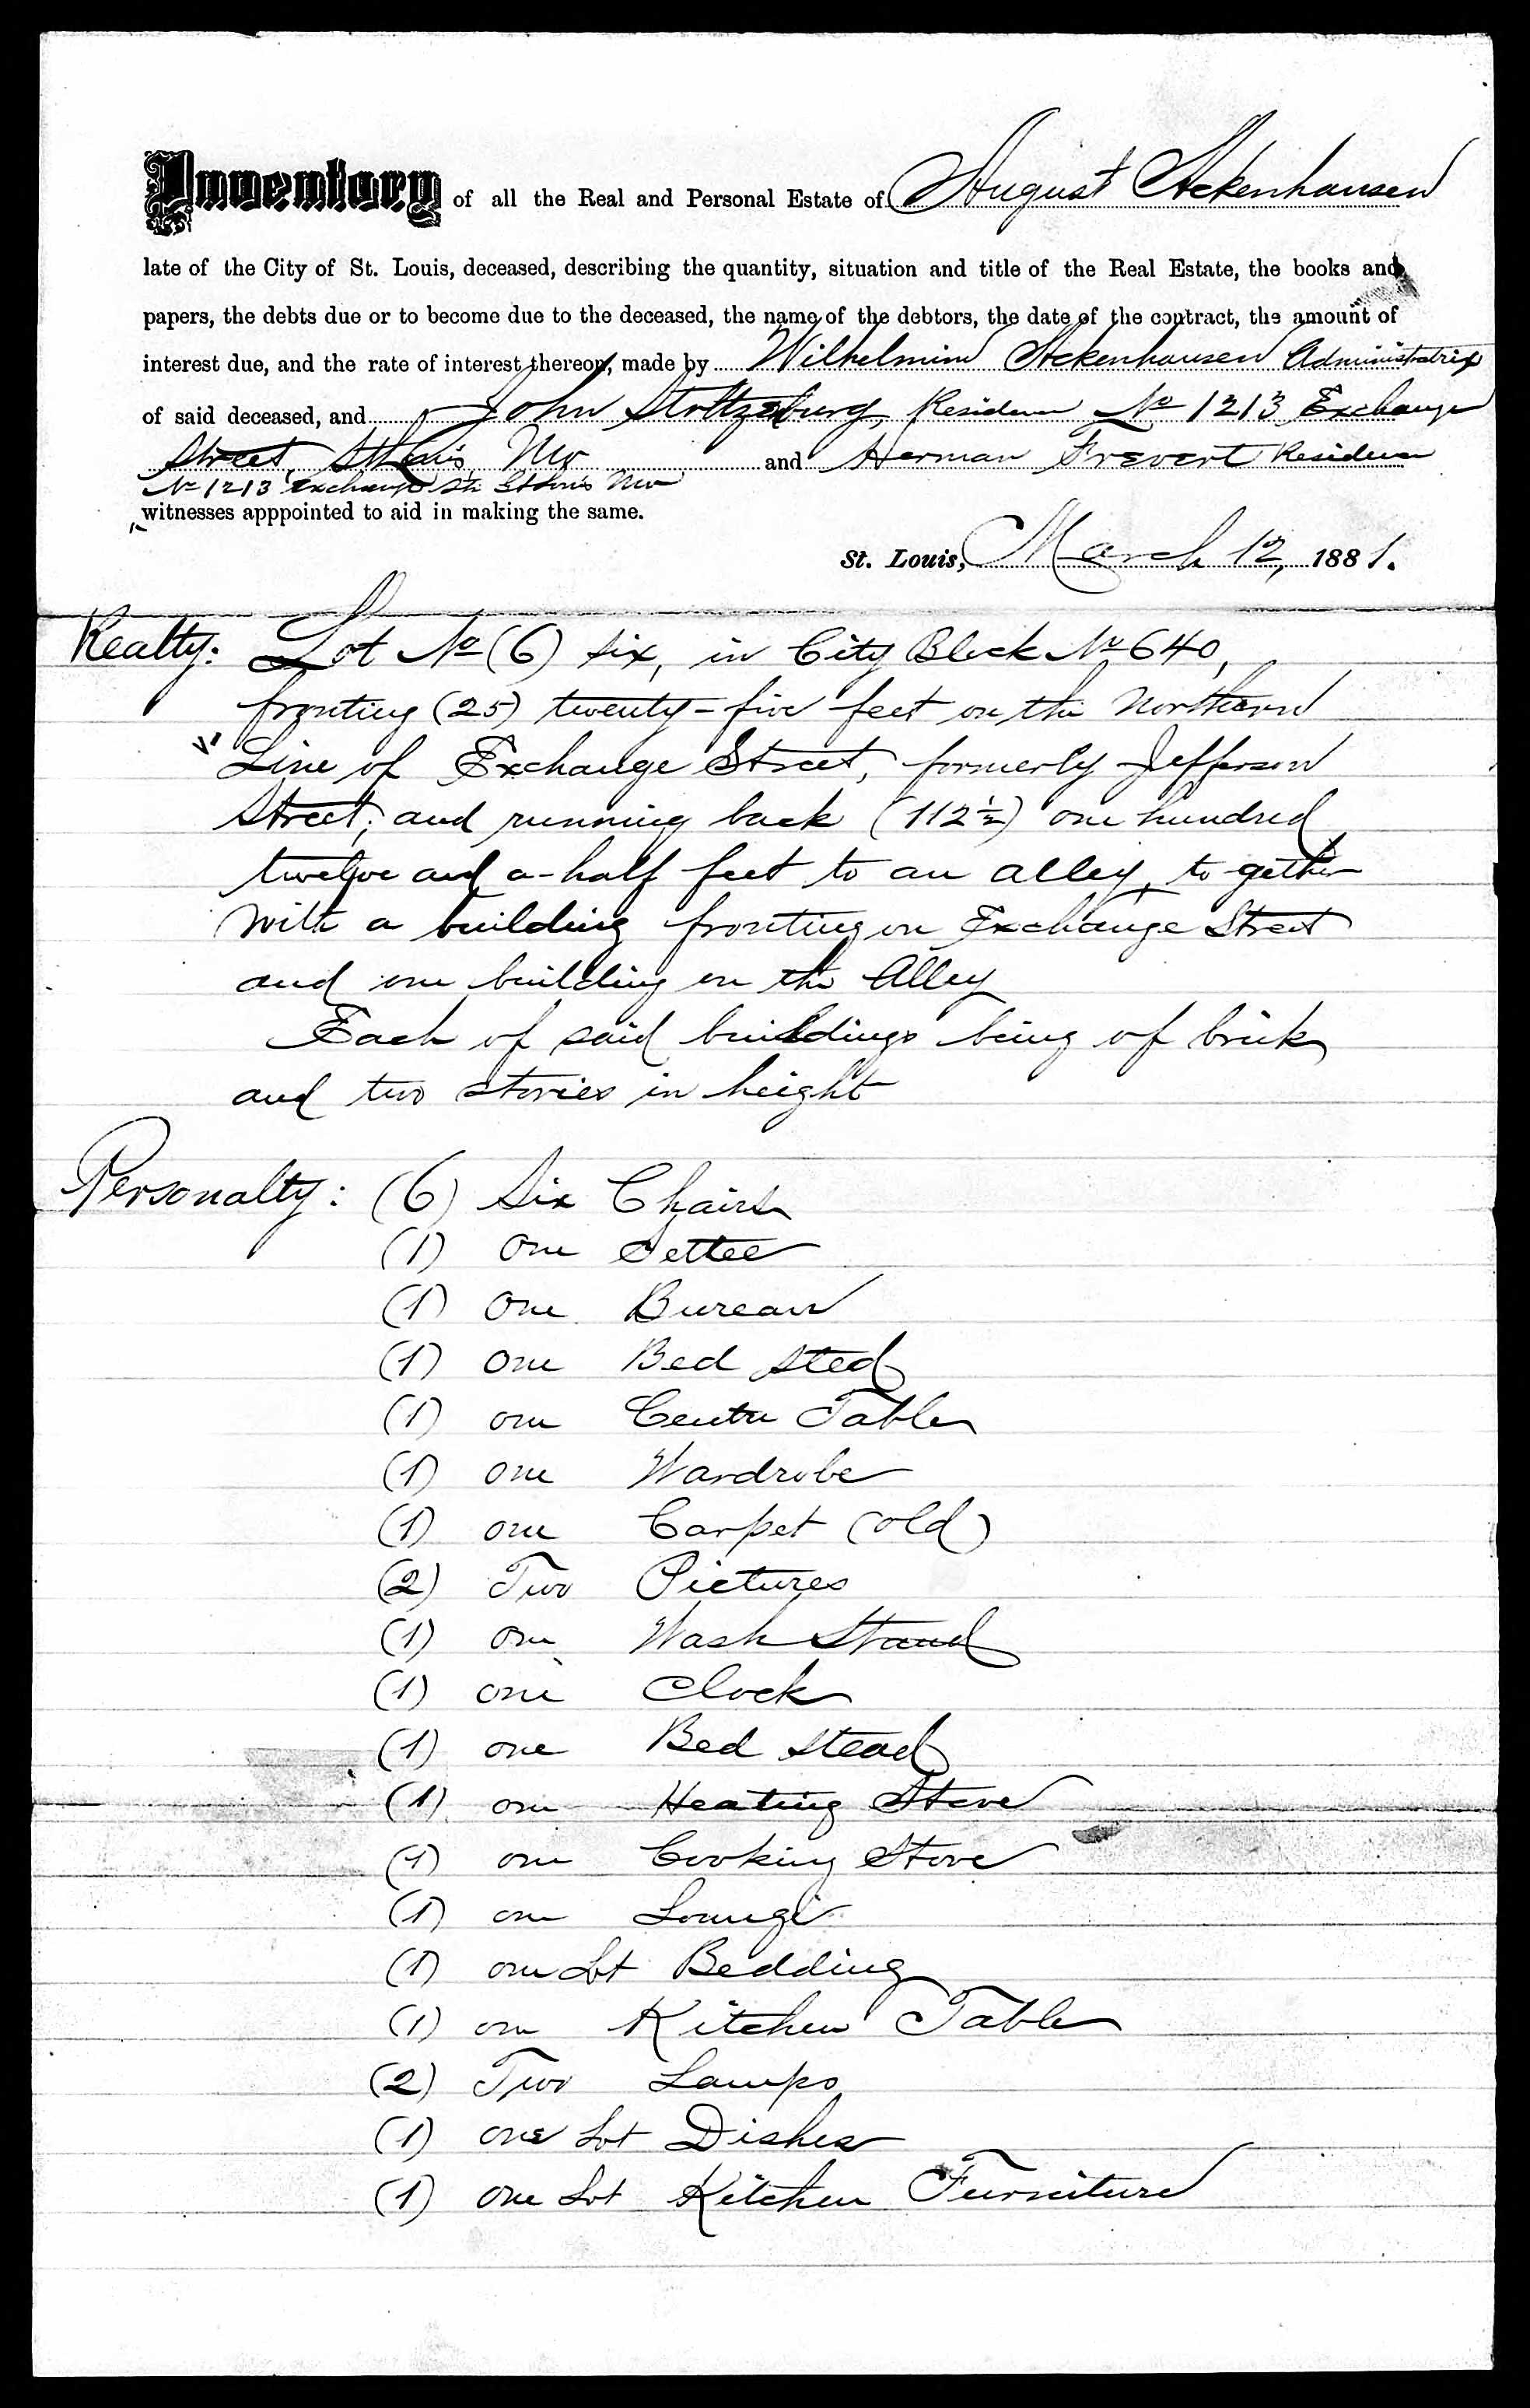 Inventory of all the Real and Personal Estate of August Ackenhausen
late of the City of St. Louis, deceased, describing the quantity, situation and title of the Real Estate, the books and
papers, the debts due or to become due to the deceased, the name of the debtors, the date of the contract, the amount of
interest due, and the rate of interest thereon, made by Wilhelmine Ackenhausen Administratrix
of said deceased, and John Stoltzeburg, Residence No 1213 Exchange
Street, St Louis, Mo and Herman Frevert Residence
No 1213 Exchange Str St Louis Mo
witnesses apppointed to aid in making the same.
St. Louis, March 12, 1881.
Realty: Lot No (6) six, in City Block No 640,
fronting (25) twenty-five feet on the Northern
Line of Exchange Street, formerly Jefferson
Street; and running back (112½) one hundred
twelve and a-half feet to an alley, to-gether
with a building fronting on Exchange Street
and one building on the Alley
Each of said buildings being of brick
and two stories in height
Personalty: (6) Six Chairs
(1) One Settee
(1) One Bureau
(1) One Bed sted
(1) one Center Table
(1) one Wardrobe
(1) one Carpet (old)
(2) Two Pictures
(1) One Wash Stand
(1) one Clock
(1) one Bed stead
(1) one Heating Stove
(1) one Cooking Stove
(1) one Lounge
(1) one Lot Bedding
(1) one Kitchen Table
(2) Two Lamps
(1) one Lot Dishes
(1) one Lot Kitchen Furniture